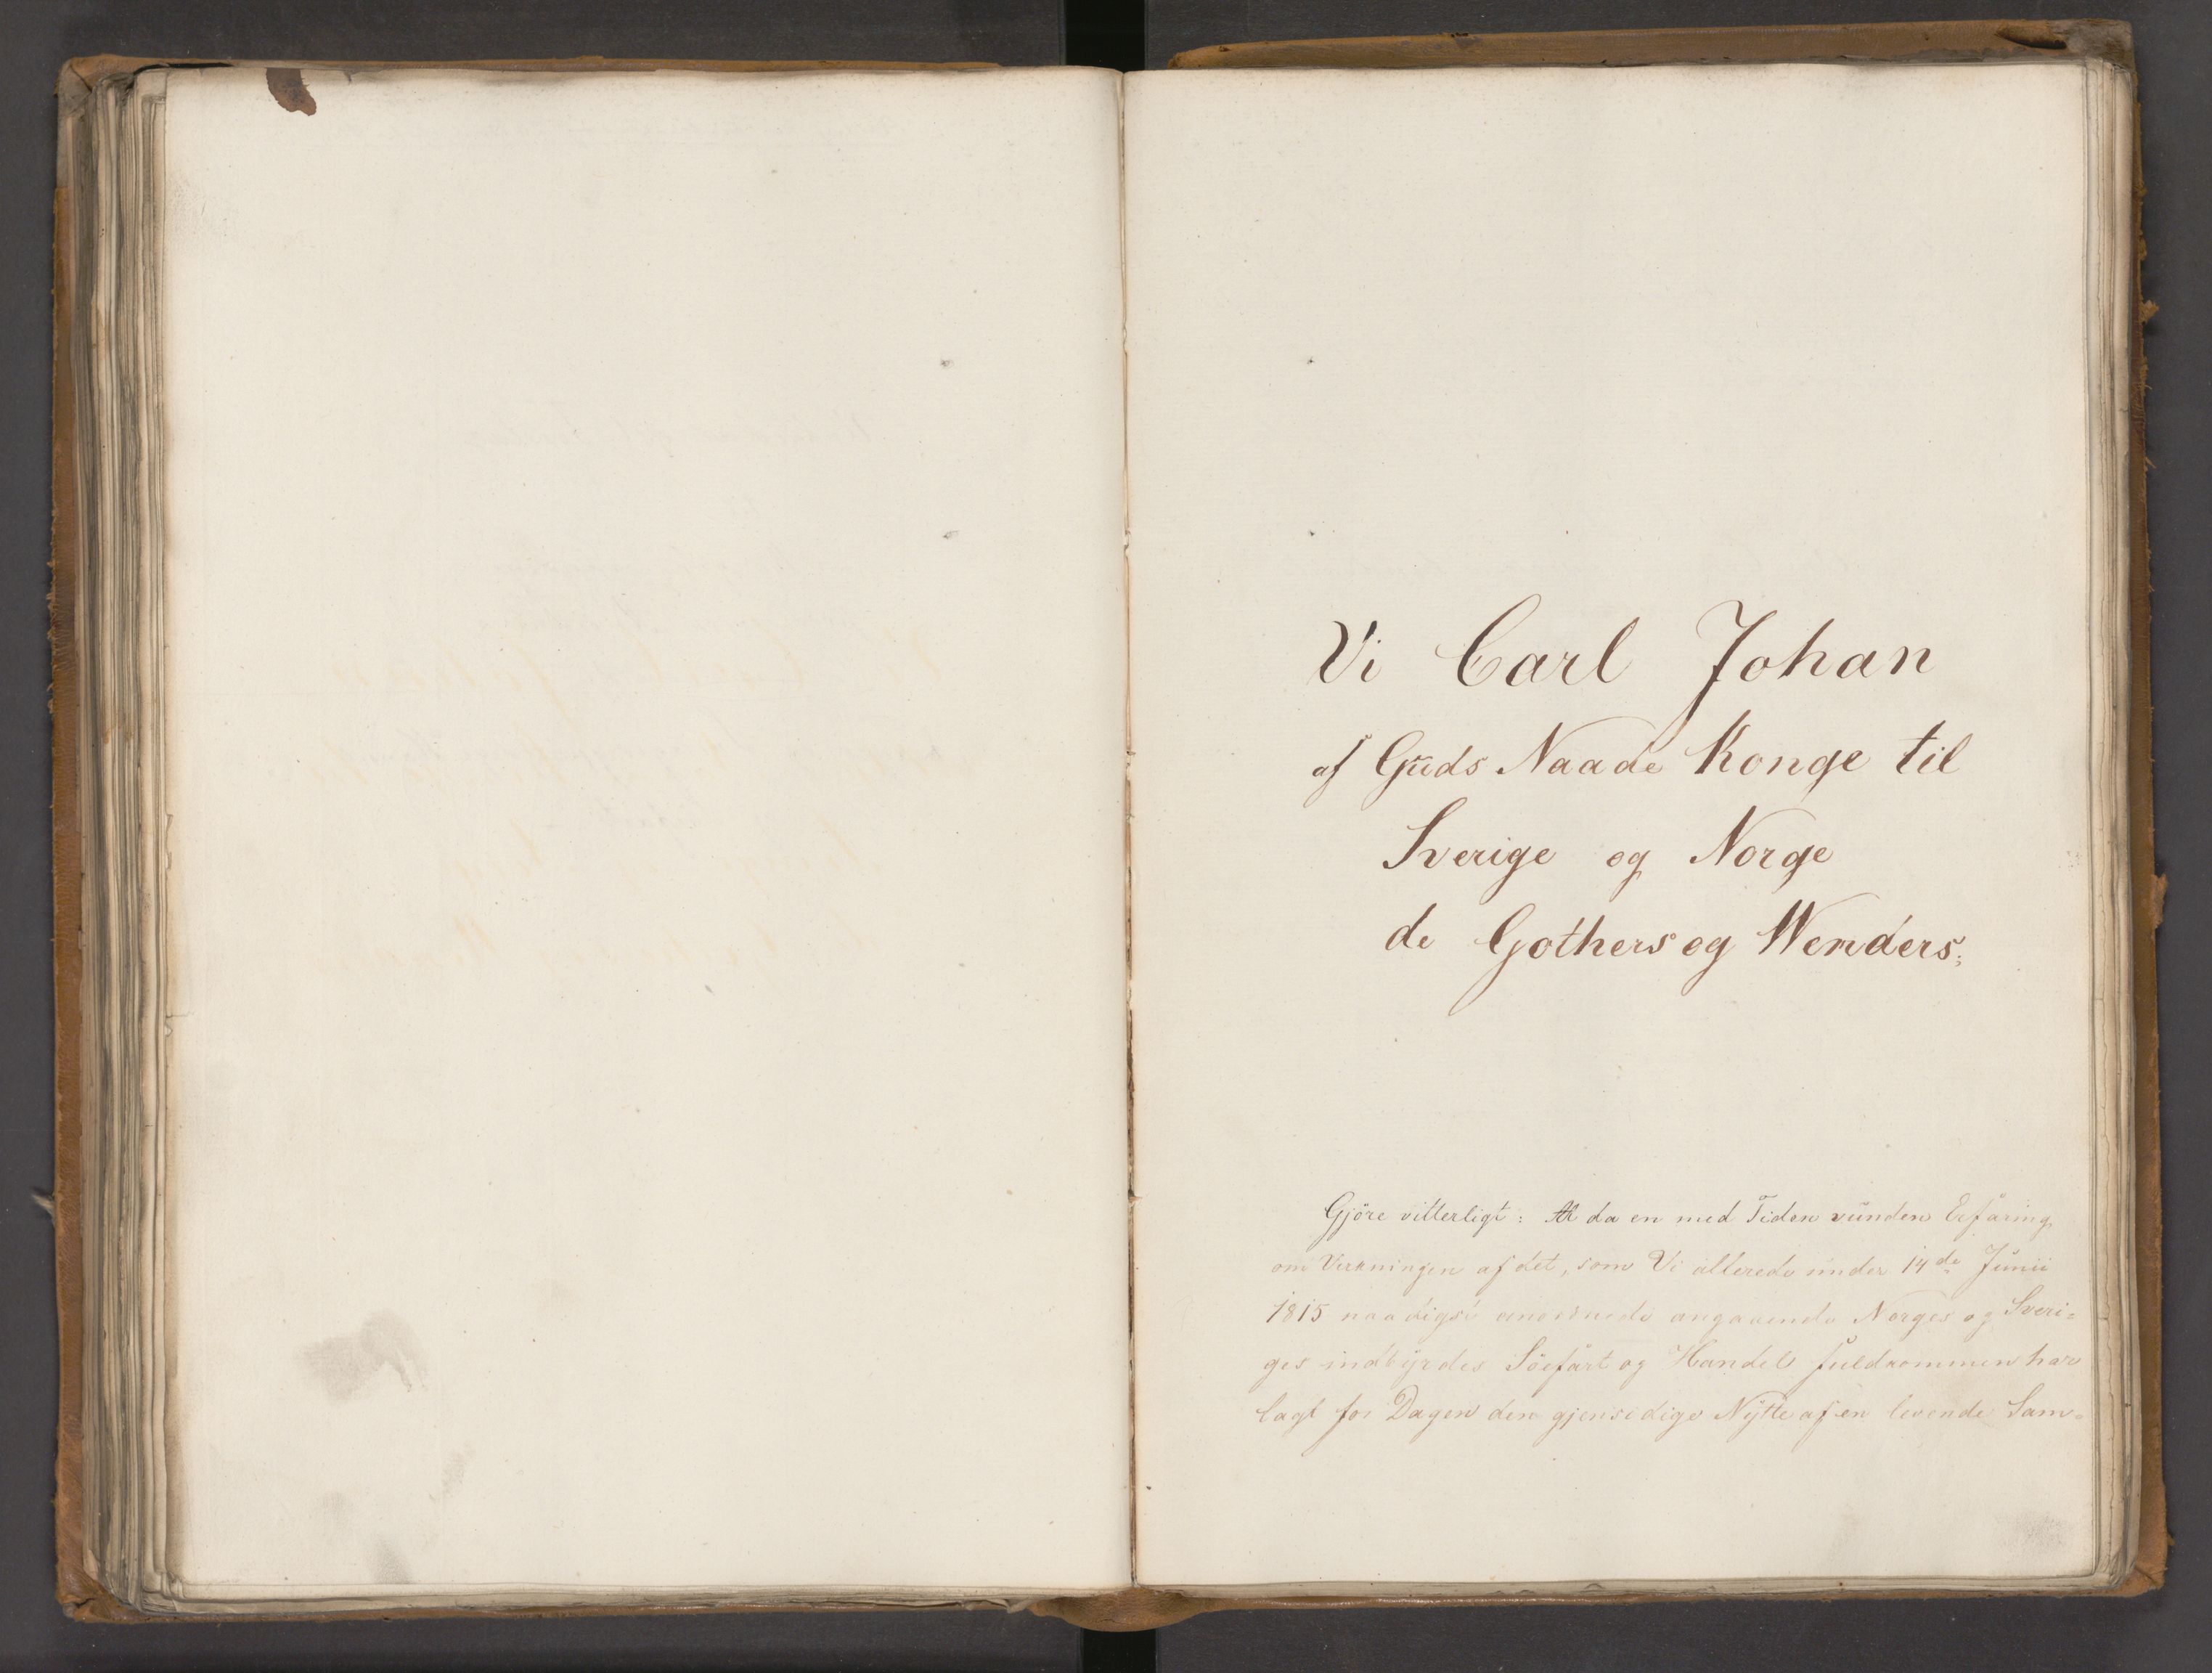 Vi Carl Johan
af Guds Naade Konge til
Sverige og Norge
de Gothers og Wenders;
Gjöre vitterligt: At da en med Tiden vunden Erfaring
om Virkningen af det, som Vi allerede under 14de Junii
1815 naadigst anordnede angaaende Norges og Sveri=
ges indbyrdes Söefart og Handel fuldkommen har
lagt for Dagen den gjensidige Nytte af en levende Sam=